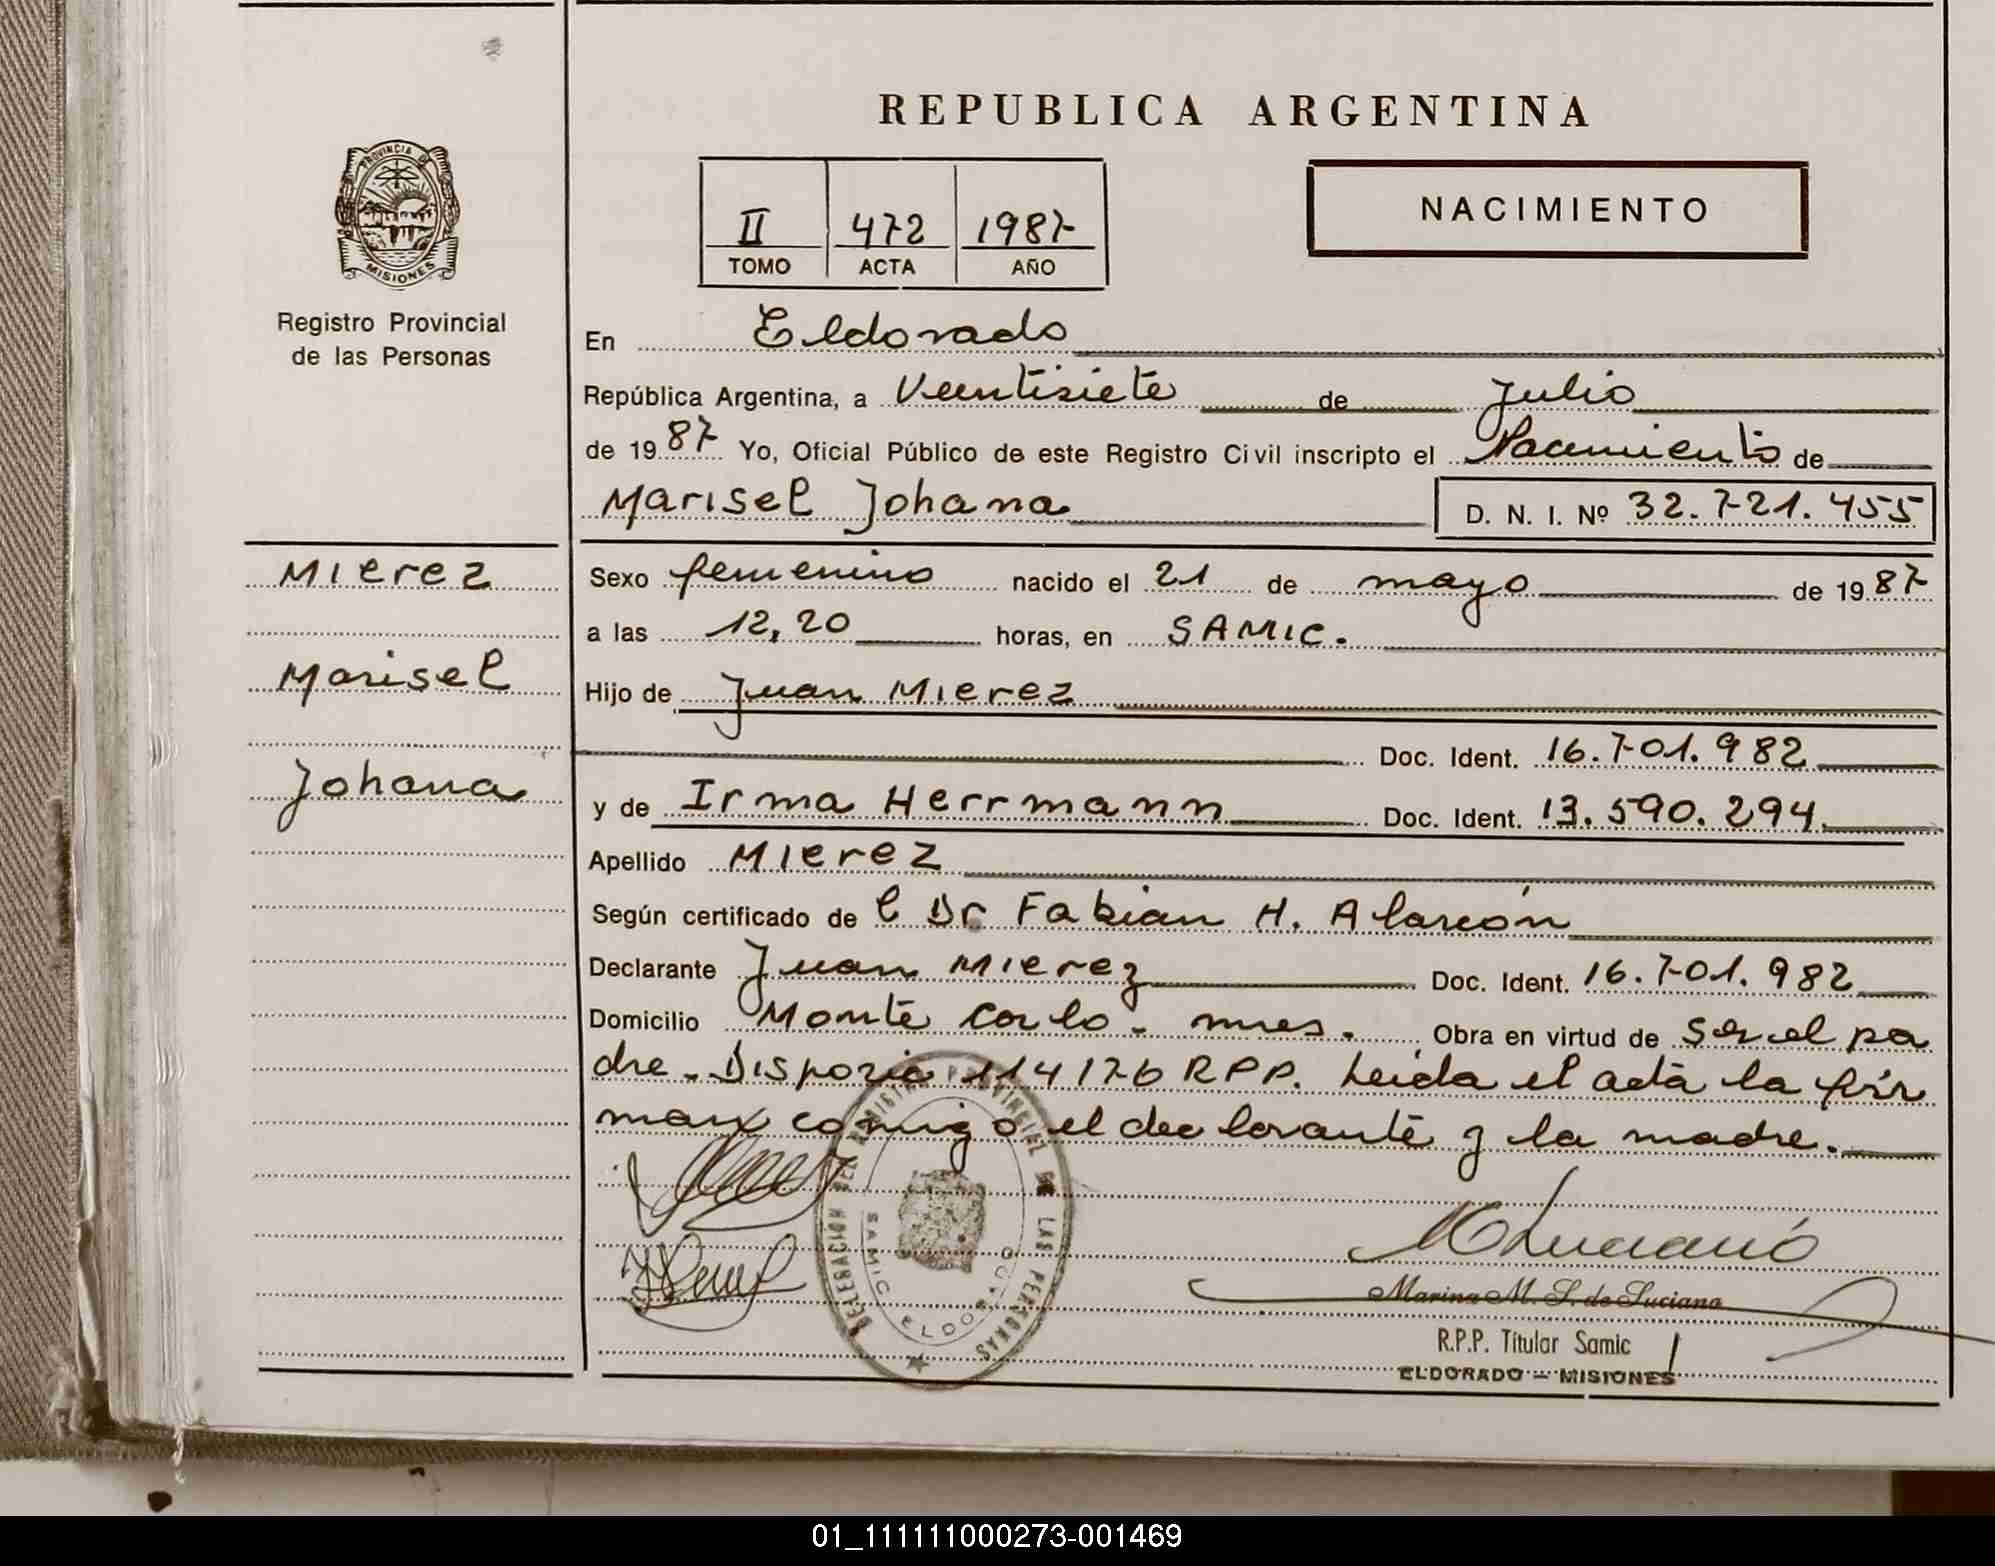 REPUBLICA ARGENTINA
PROVINCIA DE
MISIONES
Registro Provincial
de las Personas
II 472 1987
TOMO ACTA AÑO
NACIMIENTO
En Eldorado
República Argentina, a Veentisiete de Julio
de 1987 Yo, Oficial Público de este Registro Civil inscripto el Nacimiento de
Marisel Johana D. N. I. Nº 32.721.455
Mierez
Marisel
Johana
Sexo femenino nacido el 21 de mayo de 1987
a las 12,20 horas, en SAMIC.
Hijo de Juan Mierez
Doc. Ident. 16.701.982
y de Irma Herrmann Doc. Ident. 13.590.294.
Apellido Mierez
Según certificado de l Dr Fabian H. Alarcón
Declarante Juan Mierez Doc. Ident. 16.701.982
Domicilio Monte Carlo. mnes. Obra en virtud de Ser el pa
dre. Disposic 114176 RPP. Leida el acta la fir
man comigo el declarante y la madre.
DELEGACION DEL REGISTRO PROVINCIAL DE LAS PERSONAS
SAMIC ELDORADO
Marina M. S. de Luciano
R.P.P. Titular Samic
ELDORADO - MISIONES
01_111111000273-001469